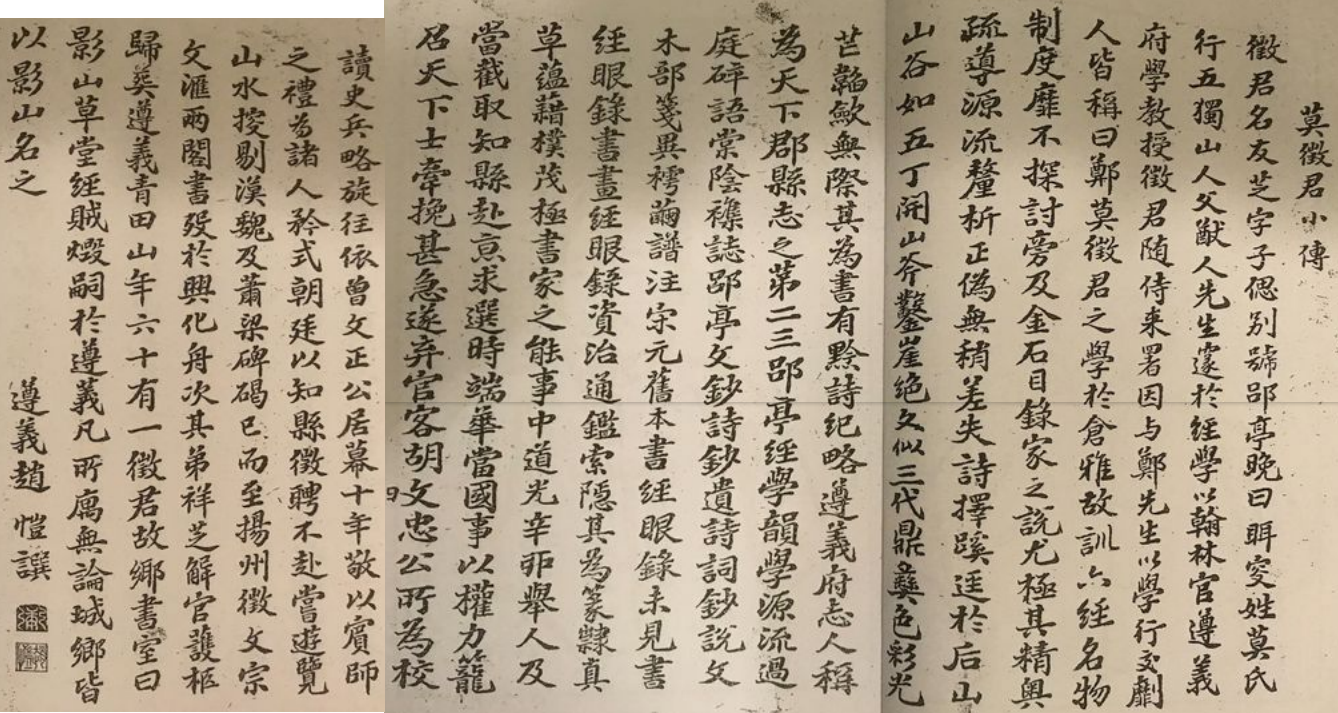 莫徵君小傳
徵君名友芝字子偲別號郘亭晚曰眲叟姓莫氏
行五獨山人父猷人先生邃於經學以翰林官遵義
府學教授徵君随侍来署因与鄭先生以學行交劘
人皆稱曰鄭莫徵君之學於倉雅故訓六經名物
制度靡不探討旁及金石目錄家之說尤極其精奥
疏導源流釐析正偽無稍差失詩擇蹊迳於后山
山谷如五丁開山斧鑿崖绝文似三代鼎彝色彩光
芒韜歛無際其為書有黔詩纪略遵義府志人稱
為天下郡縣志之第二三郘亭經學韻學源流過
庭碎語棠陰襍誌郘亭文鈔詩鈔遺詩詞鈔說文
木部箋異樗繭譜注宗元舊本書經眼錄未見書
經眼錄書畫經眼錄資治通鑑索隱其為篆隸真
草蕴藉樸茂極書家之能事中道光辛卯舉人及
當截取知縣赴京求選時端華當國事以權力籠
召天下士牽挽甚急遂弃官客胡文忠公所為校
讀史兵略旋往依曾文正公居幕十年敬以賓師
之禮為諸人矜式朝廷以知縣徵聘不赴嘗遊覽
山水搜剔漢魏及蕭梁碑碣已而至揚州徵文宗
文滙兩閣書殁於興化舟次其弟祥芝解官護柩
歸葬遵義青田山年六十有一徵君故鄉書室曰
影山草堂經賊燬嗣於遵義凡所寓無論城鄉皆
以影山名之
遵義趙愷譔